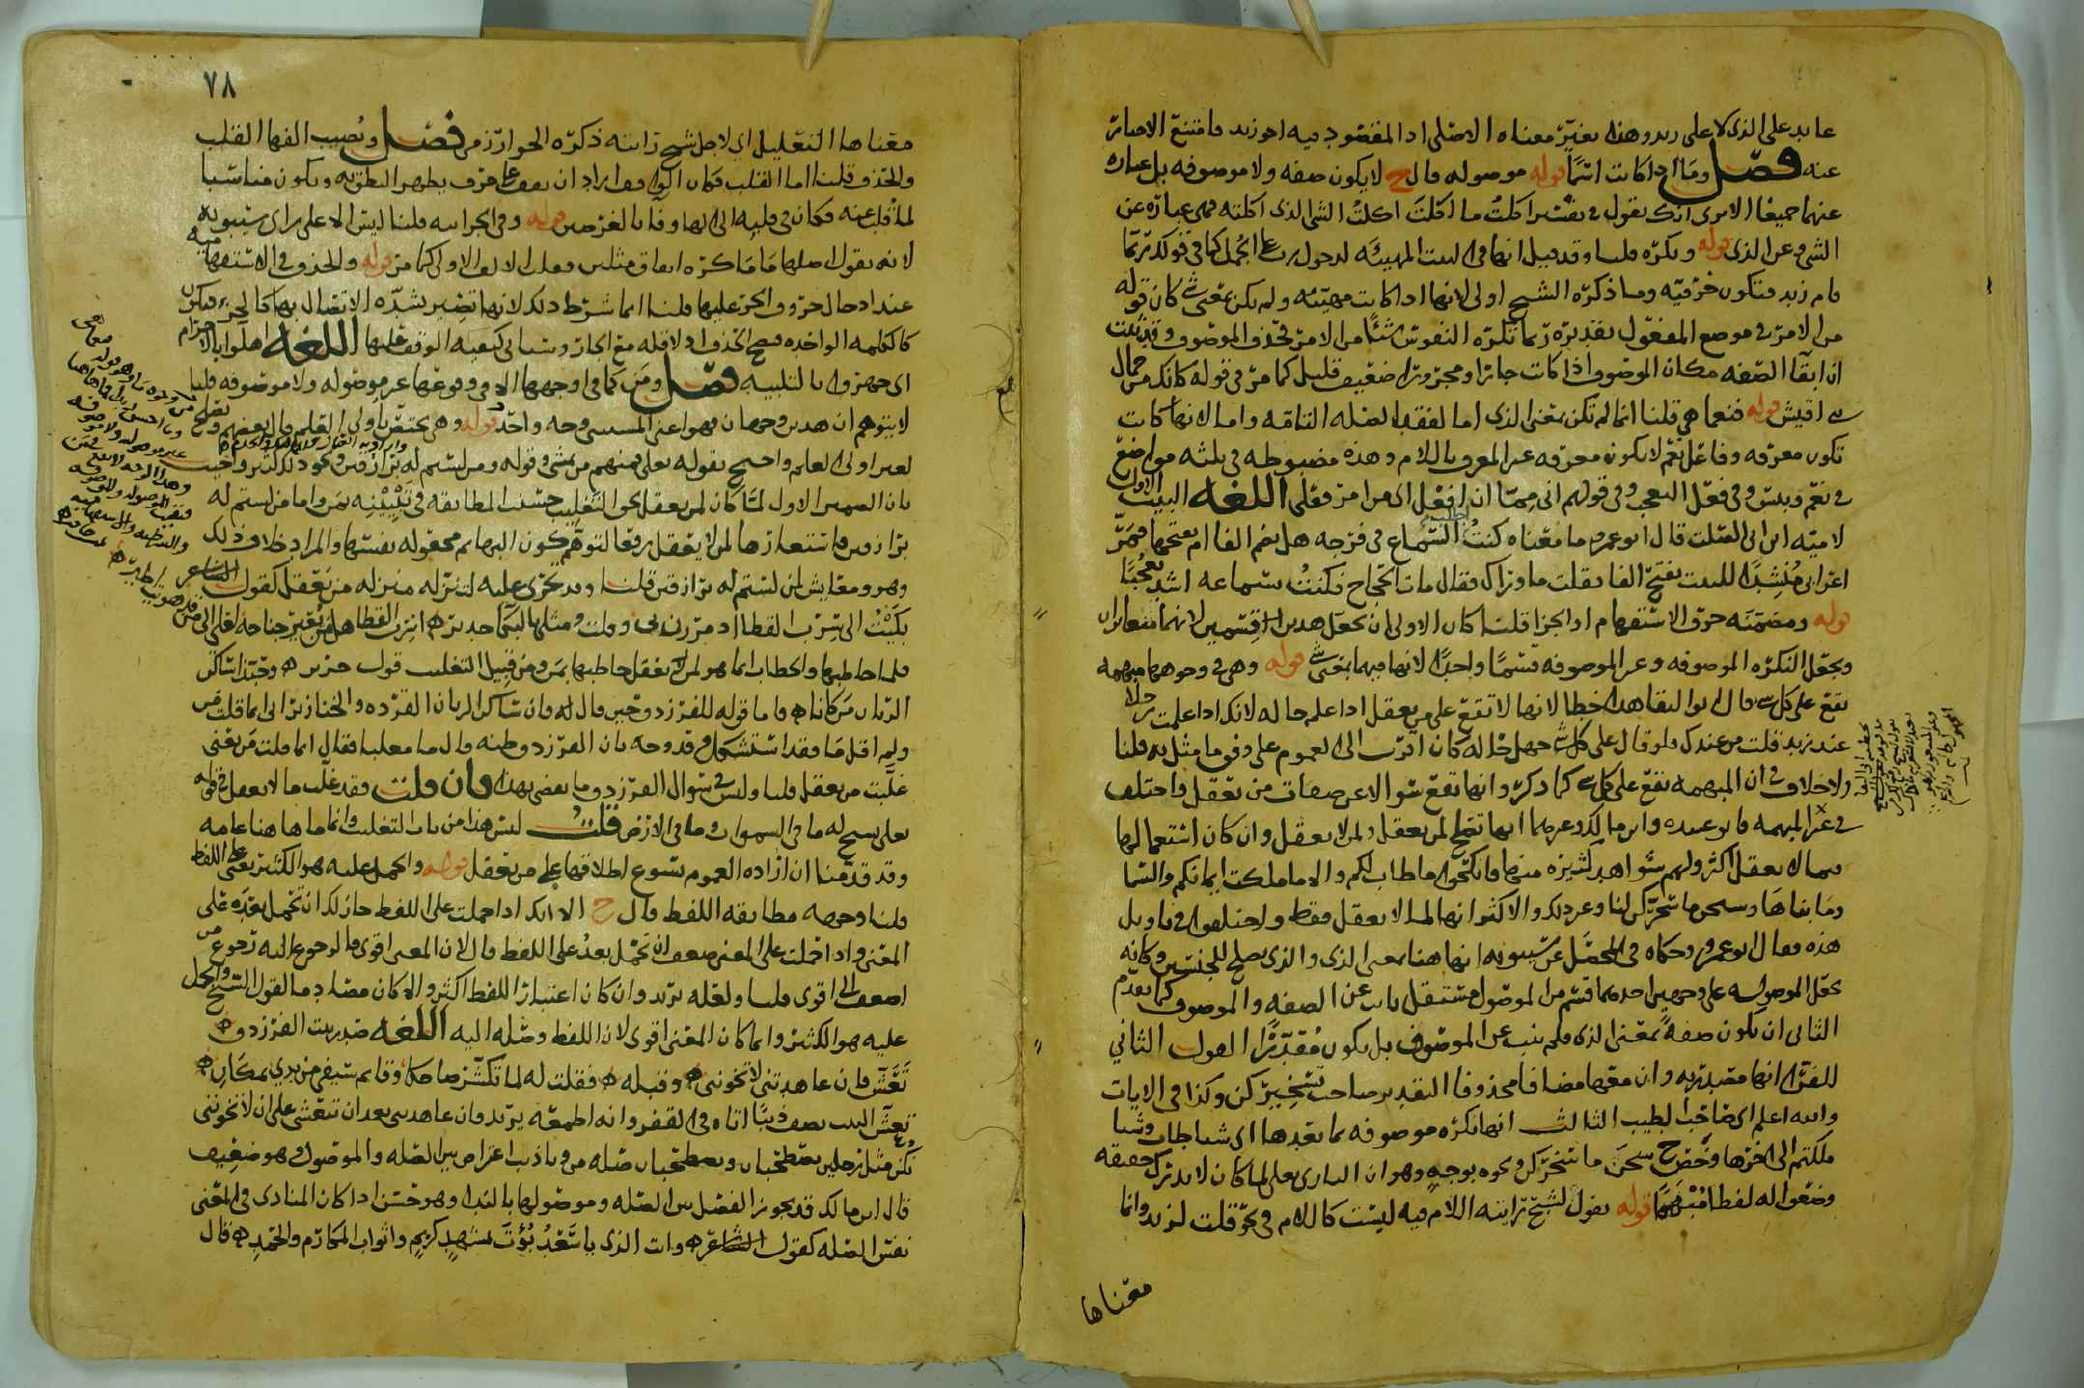 عايد على الذى لا على زيد وهذا بغير معناه الاصلى اذ المقصود فيه اخو زيد فامتنع الاخبار
عنه فصل وما اذا كانت اسما قوله موصوله قال ح لا يكون صفه ولا موصوفه بل عباره
عنهما جميعا الا ترى انك تقول فى تفسير اكلت ما اكلت اكلت الشى الذى اكلته فهى عباره عن
الشى وعن الذى قوله ونكره قلنا وقد قيل انها فى البيت المهيئه لدخول رب على الجمل كما فى قولك ربما
قام زيد فتكون حرفيه وما ذكره الشيخ اولى لانها اذا كانت مهيئه ولم تكن بمعنى شى كان قوله
من الامر فى موضع المفعول تقديره ربما تكره النفوس شيئا من الامر فحذف الموصوف وقد بينت
ان ابقا الصفه مكان الموصوف اذا كانت جارا ومجرورا ضعيف قليل كما مر فى قوله كانك من جمال
بنى اقيش قوله فنعما هى قلنا انما لم تكن بمعنى الذى اما لفقد الصله التامه واما لانها كانت
تكون معرفه وفاعل نعم لا يكون معرفه غير المعرف باللام وهذه مضبوطه فى ثلثه مواضع
فى نعم وبئس وفى فعل التعجب وفى قولهم انى مما ان افعل اى من امر فعلى اللغه البيت الاول
لاميه ابن ابى الصلت قال ابو عمرو ما معناه كنت اطلب السماع فى فرجه هل بضم الفا ام بفتحها فمر
اعرابى منشدا للبيت بفتح الفا فقلت ما وراك فقال مات الحجاج فكنت بسماعه اشد تعجبا
قوله ومضمنه حرف الاستفهام او الجزا قلنا كان الاولى ان يجعل هذين القسمين لانهما متغايران
ويجعل النكره الموصوفه وغير الموصوفه قسما واحدا لانها فيهما بمعنى شى قوله وهى فى وجوهها مبهمه
تقع على كل شى قال ابو البقا هذا خطا لانها لا تقع على من يعقل اذا علم حاله لانك اذا علمت رجلا
عند زيد قلت من عندك ولو قال على كل شى جهل حاله كان اقرب الى العموم على وفق ما مثل به قلنا
ولا خلاف فى ان المبهمه تقع على كل شى كما ذكر وانها تقع سوالا عن صفات من يعقل واختلف
فى غير المبهمه فابو عبيده وابن مالك وغيرهما انها تصلح لمن يعقل ولمن لا يعقل وان كان استعمالها
فيما لا يعقل اكثر ولهم شواهد كثيره منها فانكحوا ما طاب لكم والا ما ملكت ايمانكم والسما
وما بناها وسبحن ما سخركن لنا وغير ذلك والاكثر انها لما لا يعقل فقط واختلفوا فى تاويل
هذه فقال ابو عمرو وحكاه فى المحصل عن سيبويه انها هنا بمعنى الذى والذى يصلح للجنسين وكانه
يجعل الموصوله على وجهين احدهما قسم من الموصول مستقل ناب عن الصفه والموصوف كما تقدم
الثانى ان تكون صفه بمعنى الذى فلم ينب عن الموصوف بل يكون مقدرا القول الثاني
للفرا انها مصدريه وان معها مضافا محذوفا التقدير صاحب تسخيركن وكذا فى الايات
والله اعلم اى صاحب الطيب الثالث انها نكره موصوفه بما بعدها اى شيا طاب وشيا
ملكتم الى اخرها وخص ح سبحن ما سخركن ونحوه بوجه وهو ان البارى تعالى لما كان لا يدرك حقيقه
وضعوا له لفظا مبهما قوله يقول لشبح تراينه اللام فيه ليست كاللام فى نحو قلت لزيد وانما
معناها
٧٨
معناها التعليل اى لاجل شبح تراينه ذكره الخوارزمى فصل وتصيب الفها القلب
والحذف قلنا اما القلب فكان الواقف اراد ان يقف على حرف يظهر النطق به ويكون مناسبا
لما قلب عنه فكان فى قلبه الى الها وفا بالغرضين قوله وفى الجزائيه قلنا ليس الا على راى سيبويه
لانه يقول اصلها ما ما كره اتفاق مثلين فقلب الالف الاولى كما مر قوله والحذف فى الاستفهاميه
عند ادخال حروف الجر عليها قلنا انما شرط ذلك لانها تصير بشده الاتصال بها كالجزء فيكون
كالكلمه الواحده فصح الحذف اذ لا قله مع الجار وسياتى كيفيه الوقف عليها اللغه اهلوا بالاحرام
اى جهزوا بالتلبيه فصل ومن كما فى اوجهها الا فى وقوعها غير موصوله ولا موصوفه قلنا
لا يتوهم ان هذين وجهان فهو اعنى المستثنى وجه واحد قوله وهى تختص باولى العلم قال بعضهم وتقع
لغير اولى العلم واحتج بقوله تعلى فمنهم من يمشى وقوله ومن لستم له برازقين ونحو ذلك كثير واجيب
بان الضمير الاول لما كان لمن يعقل نحو التغليب حسنت المطابقه فى تبيينه بمن واما من لستم له
برازقين فاستعارها لمن لا يعقل رفعا لتوهم كون البهايم مجعوله بنفسها والمراد خلاف ذلك
وهو ومعايش لمن لستم له برازقين قلنا وقد تجرى عليه لتنزله منزله من يعقل كقول الشاعر
بكيت الى سرب القطا اذ مررن بى وقلت ومثلى بالبكا جدير ه اسرب القطا هل من يعير جناحه لعلى الى من قد هويت اطير ه
فلما خاطبها والخطاب انما هو لمن يعقل خاطبها بمن ومن قبيل التغليب قول جرير ه وحبذا ساكن
الريان من كانا ه واما قوله للفرزدق حين قال له وان ساكن الريان القرده والخنازير انى انما قلت من
ولم اقل ما فقد استشكل فى قدوحه بان الفرزدق ظنه قال ما مغلبا فقال انما قلت من يعنى
غلبت من يعقل قلنا وليس فى سوال الفرزدق ما يقضى بهذا فان قلت فقد غلب ما لا يعقل فى قوله
تعلى يسبح له ما فى السموات وما فى الارض قلت ليس هذا من باب التغليب وانما ما ها هنا عامه
وقد قدمنا ان اراده العموم تسوغ اطلاقها على من يعقل قوله والحمل عليه هو الكثير يعنى على اللفظ
قلنا وجهه مطابقه اللفظ قال ح الا انك اذا حملت على اللفظ جاز لك ان تحمل بعده على
المعنى واذا حملت على المعنى ضعف ان تحمل بعد على اللفظ قال لان المعنى اقوى فالرجوع اليه رجوع من
اضعف الى اقوى قلنا ولعله يريد وان كان اعتبار اللفظ اكثر والا كان مضادما لقول الشيخ والحمل
عليه هو الكثير وانما كان المعنى اقوى لان اللفظ وصله اليه اللغه صدر بيت الفرزدق ه
تعش فان عاهدتنى لا تخوننى ه وقبله ه فقلت له لما تكشر ضاحكا وقايم سيفى من يدي بمكان ه
تعش البيت يصف ذئبا اتاه فى القفر وانه اطعمه يريد فان عاهدتنى بعد ان تتعشى على ان لا تخوننى
نكن مثل رجلين يصطحبان ويصطحبان صله من وياذئب اعتراض بين الصله والموصول وهو ضعيف
قال ابن مالك قد يجوز الفصل بين الصله وموصولها بالندا وهو حسن اذا كان المنادى فى المعنى
نفس الصله كقول الشاعر ه وانت الذى يا سعد بؤت بمشهد كريم واثواب المكارم والحمد ه قال